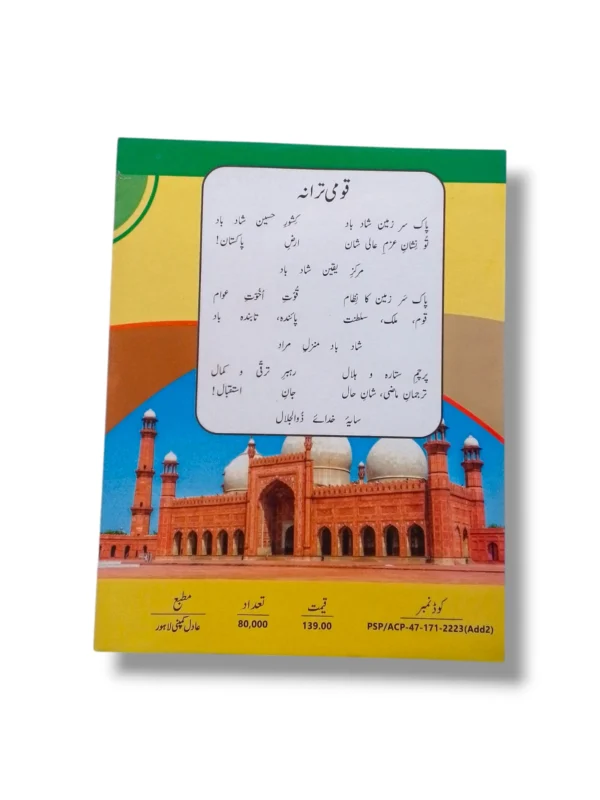 قومی ترانہ
پاک سر زمین شاد باد کِشورِ حسین شاد باد
تُو نِشانِ عزمِ عالی شان ارضِ پاکستان!
مرکزِ یقین شاد باد
پاک سَر زمین کا نِظام قُوّتِ اُخوّتِ عوام
قوم، ملک، سلطنت پائندہ، تابندہ باد
شاد باد منزلِ مراد
پرچمِ ستارہ و ہلال رہبرِ ترقّی و کمال
ترجمانِ ماضی، شانِ حال جانِ استقبال!
سایۂ خدائے ذُوالجلال
کوڈ نمبر قیمت تعداد مطبع
PSP/ACP-47-171-2223(Add2) 139.00 80,000 عادل کمپنی لاہور